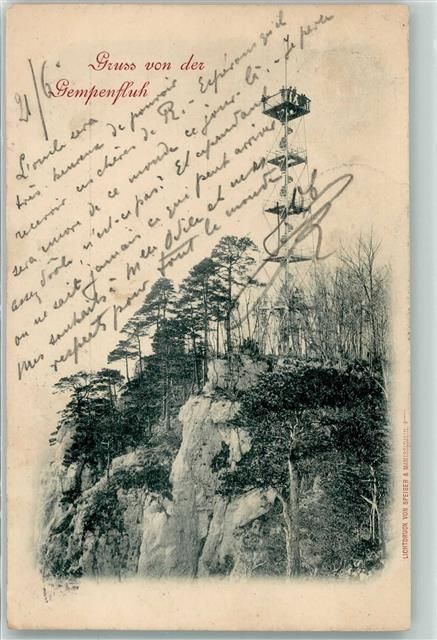 Gruss von der
Gempenfluh
21/6. 06
L'oncle sera
très heureux de pouvoir
recevoir ces chères de R. - Espérons qu'il
sera encore de ce monde ce jour là - Je perds
assez drôle, n'est-ce pas? Et cependant
on ne sait jamais ce qui peut arriver
Mes souhaits à Melle Odile et mes
respects pour tout le monde
R
LICHTDRUCK VON SPEISER &